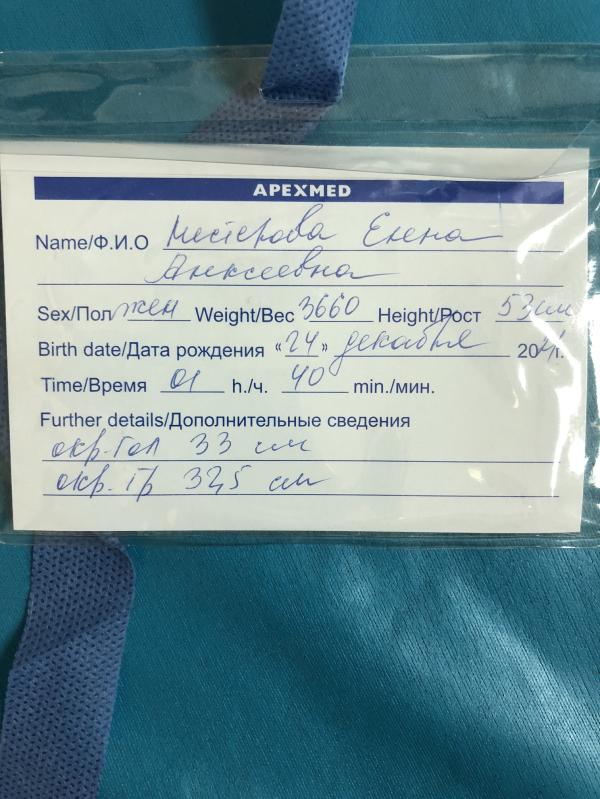 APEXMED
Name/Ф.И.О Нестерова Елена
Алексеевна
Sex/Пол жен Weight/Вес 3660 Height/Рост 53 см
Birth date/Дата рождения «24» декабря 20 г.
Time/Время 01 h./ч. 40 min./мин.
Further details/Дополнительные сведения
окр. гол 33 см
окр. гр 32,5 см